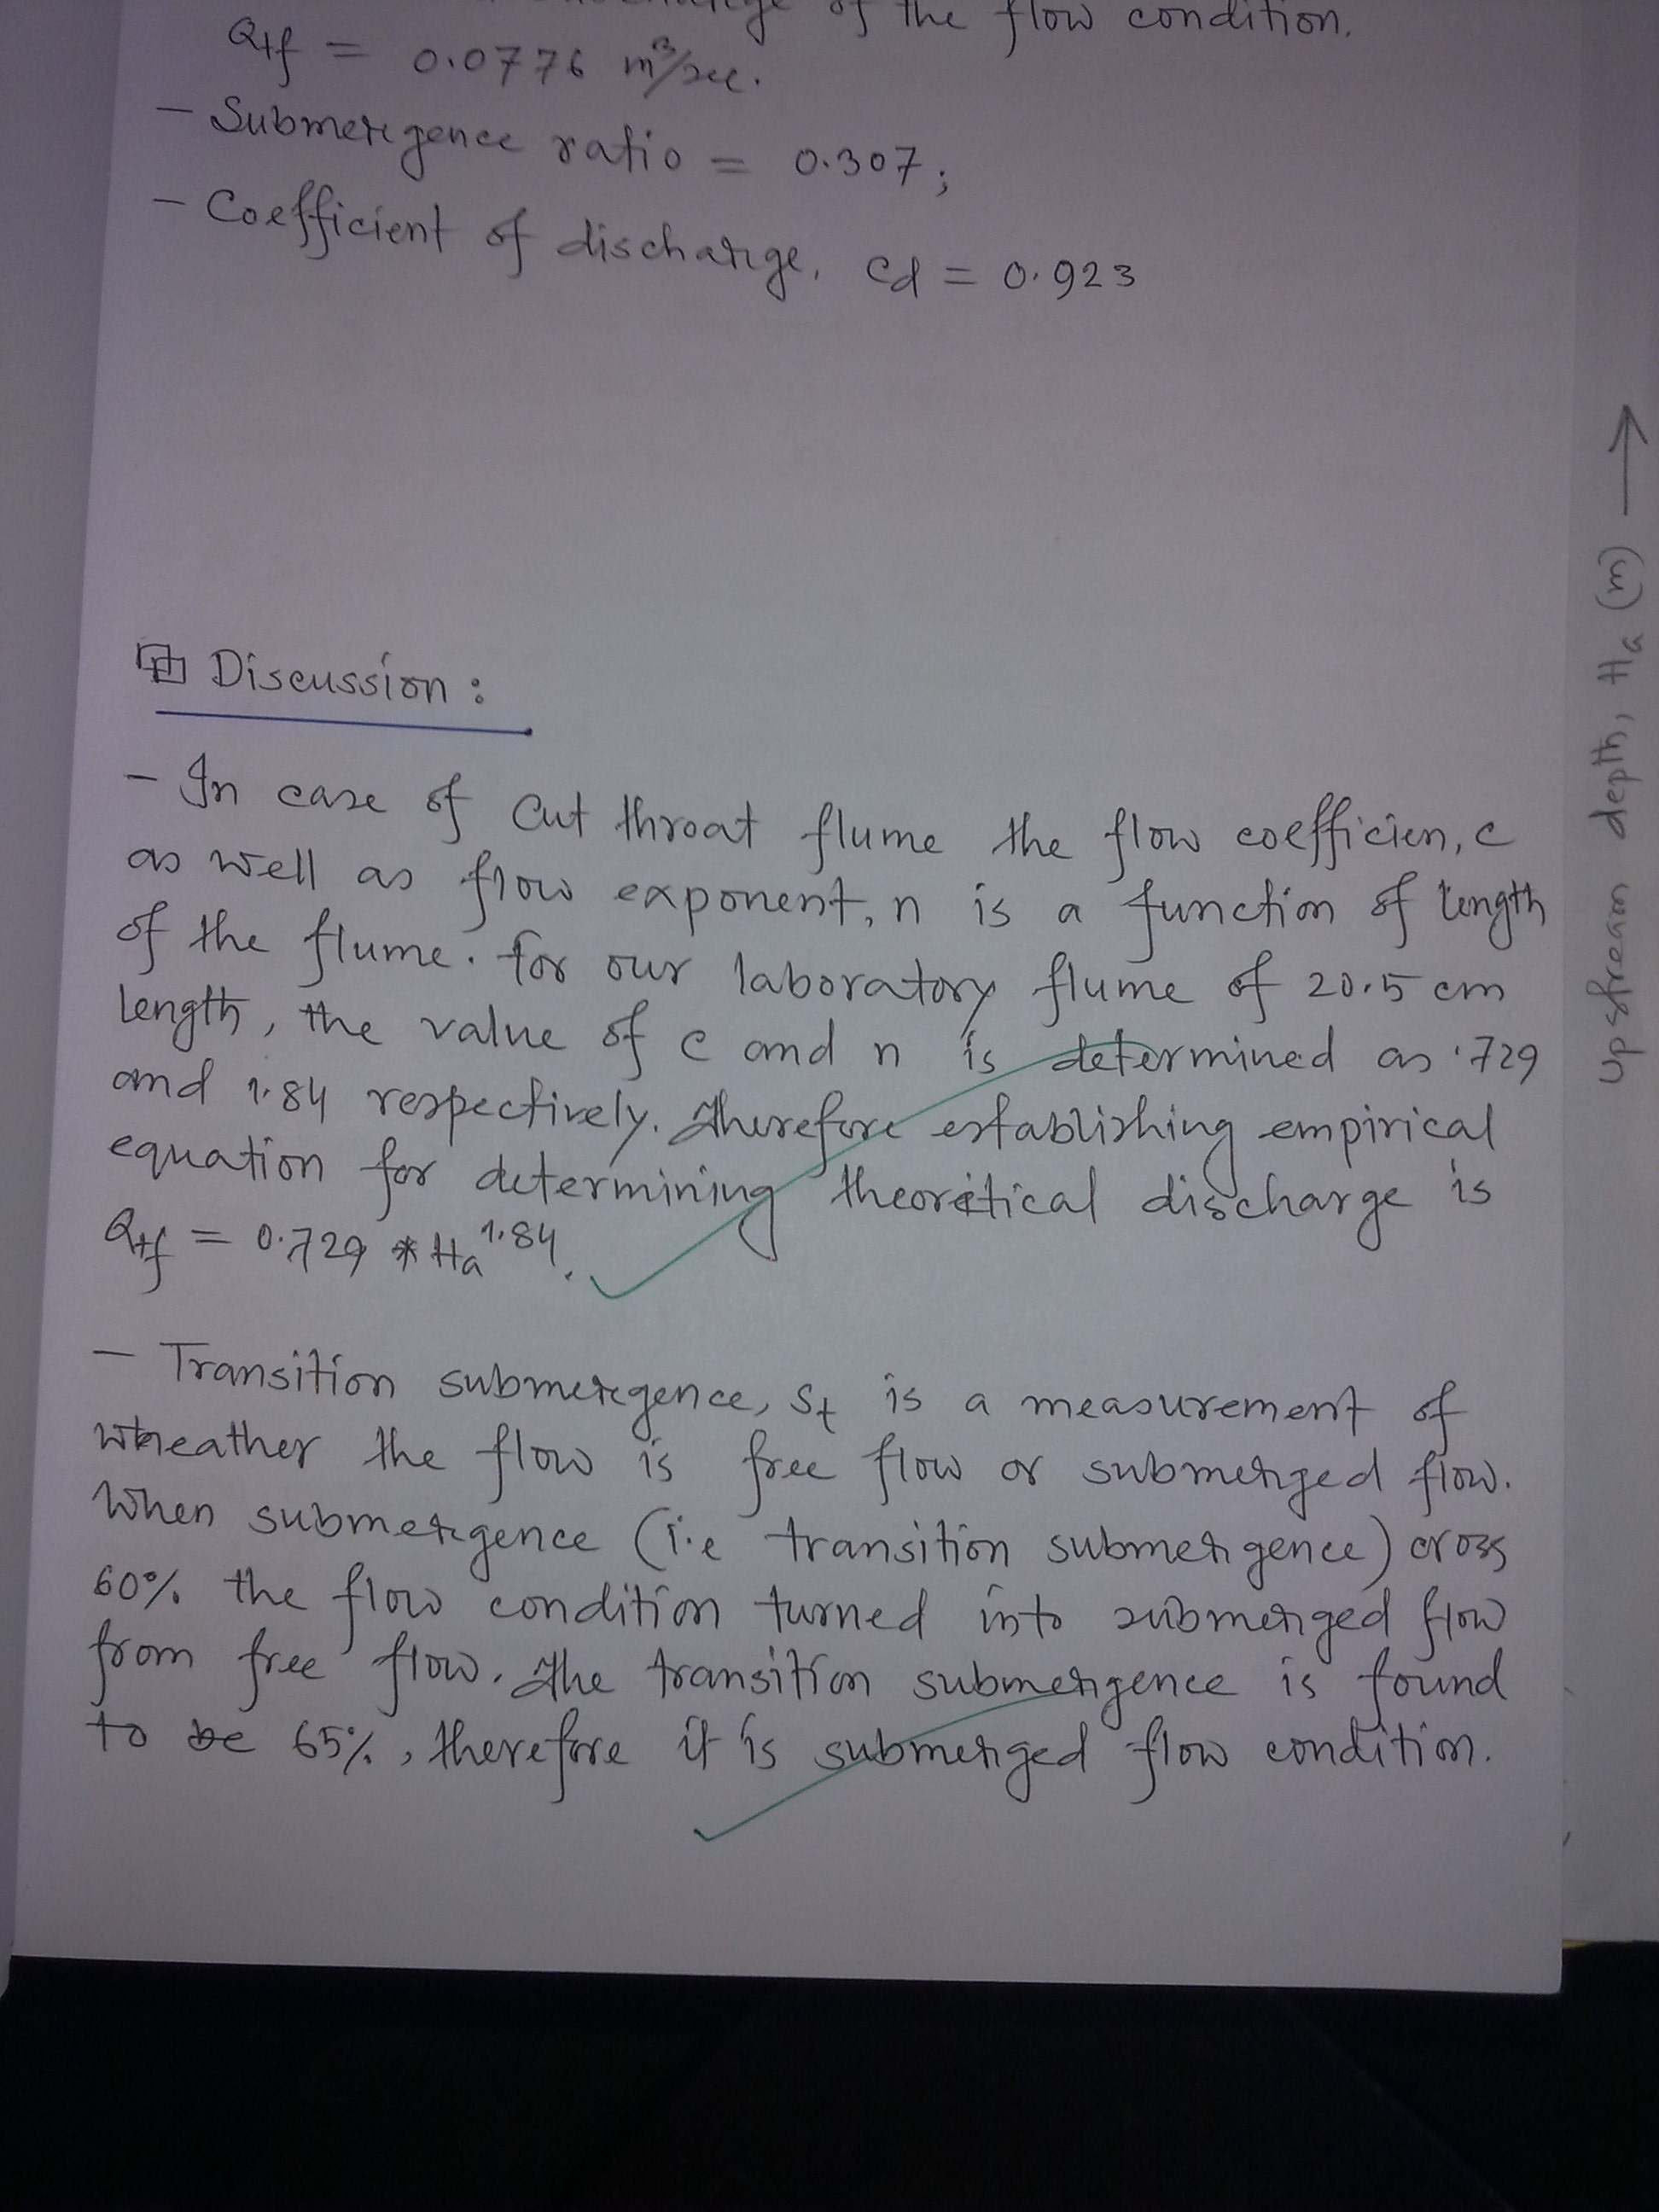 of the flow condition.
Qtf = 0.0776 m³/sec.
- Submergence ratio = 0.307;
- Coefficient of discharge, cd = 0.923
Discussion:
- In case of Cut throat flume the flow coefficien, c
as well as flow exponent, n is a function of length
of the flume. for our laboratory flume of 20.5 cm
length, the value of c and n is determined as .729
and 1.84 respectively. Therefore establishing empirical
equation for determining theoritical discharge is
Qtf = 0.729 * Ha^1.84.
- Transition submergence, St is a measurement of
wheather the flow is free flow or submerged flow.
When submergence (i.e transition submergence) cross
60% the flow condition turned into submerged flow
from free flow. The transition submergence is found
to be 65%, therefore it is submerged flow condition.
upstream depth, Ha (m) →